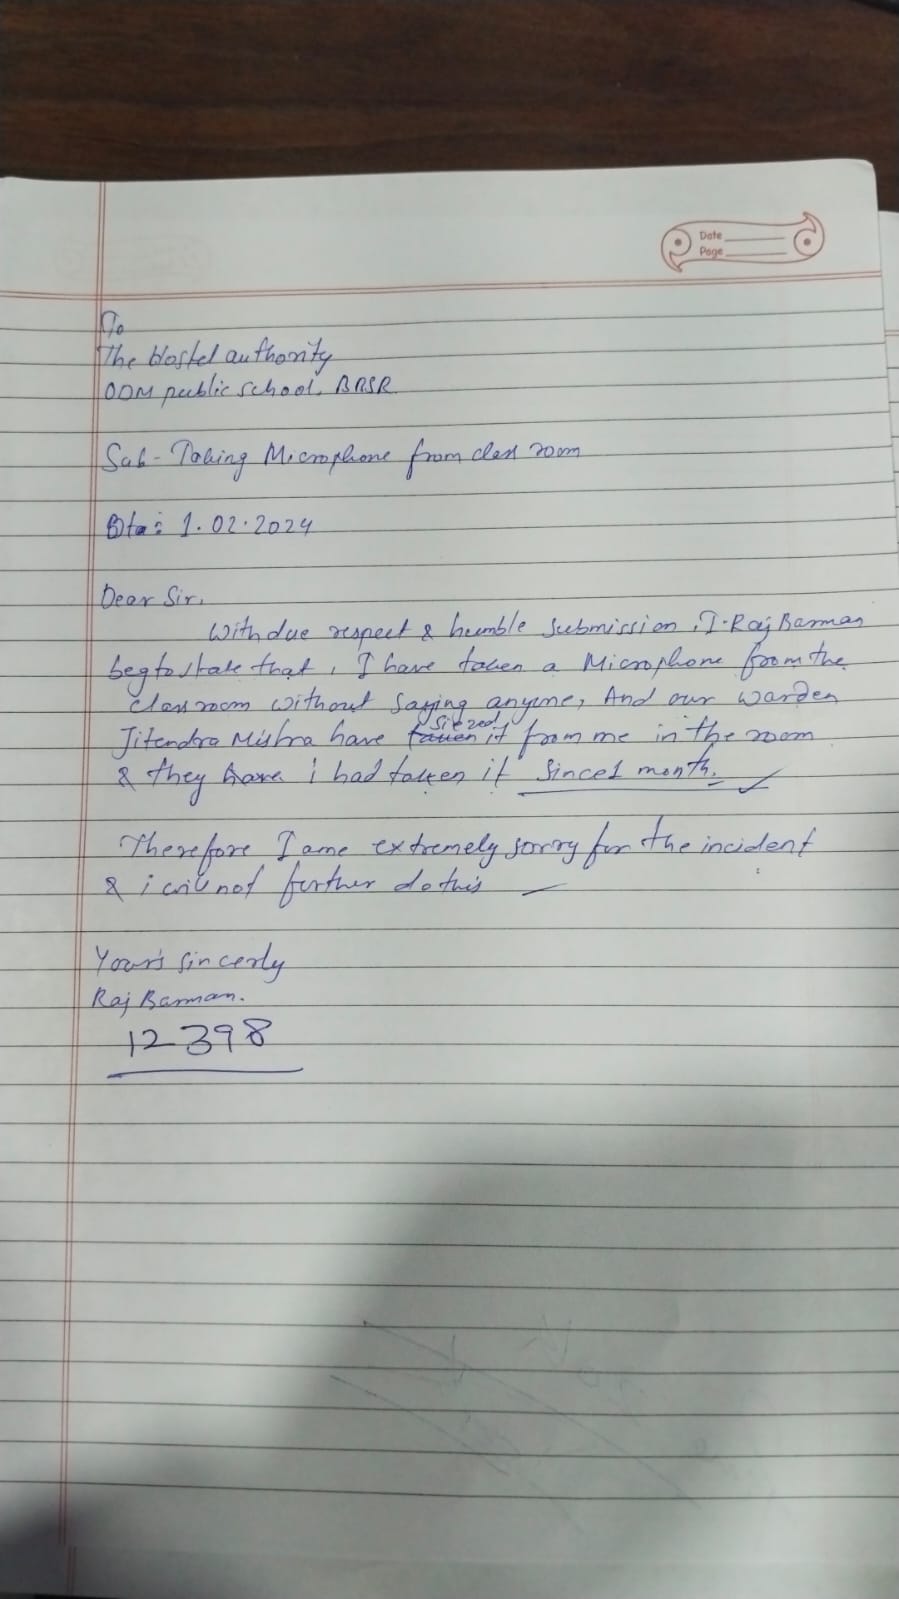 Date
Page
To
The Hostel authority
ODM public school, BBSR
Sub- Taking Microphone from class room
Date: 1.02.2024
Dear Sir,
With due respect & humble submission, I-Raj Barman
beg to state that, I have taken a Microphone from the
classroom without saying anyone, And our warden
siezed
Jitendra Mishra have taken it from me in the room
& they have i had taken it since 1 month.
Therefore I ame extremely sorry for the incident
& i will not further do this
Yours sincerly
Raj Barman.
12398